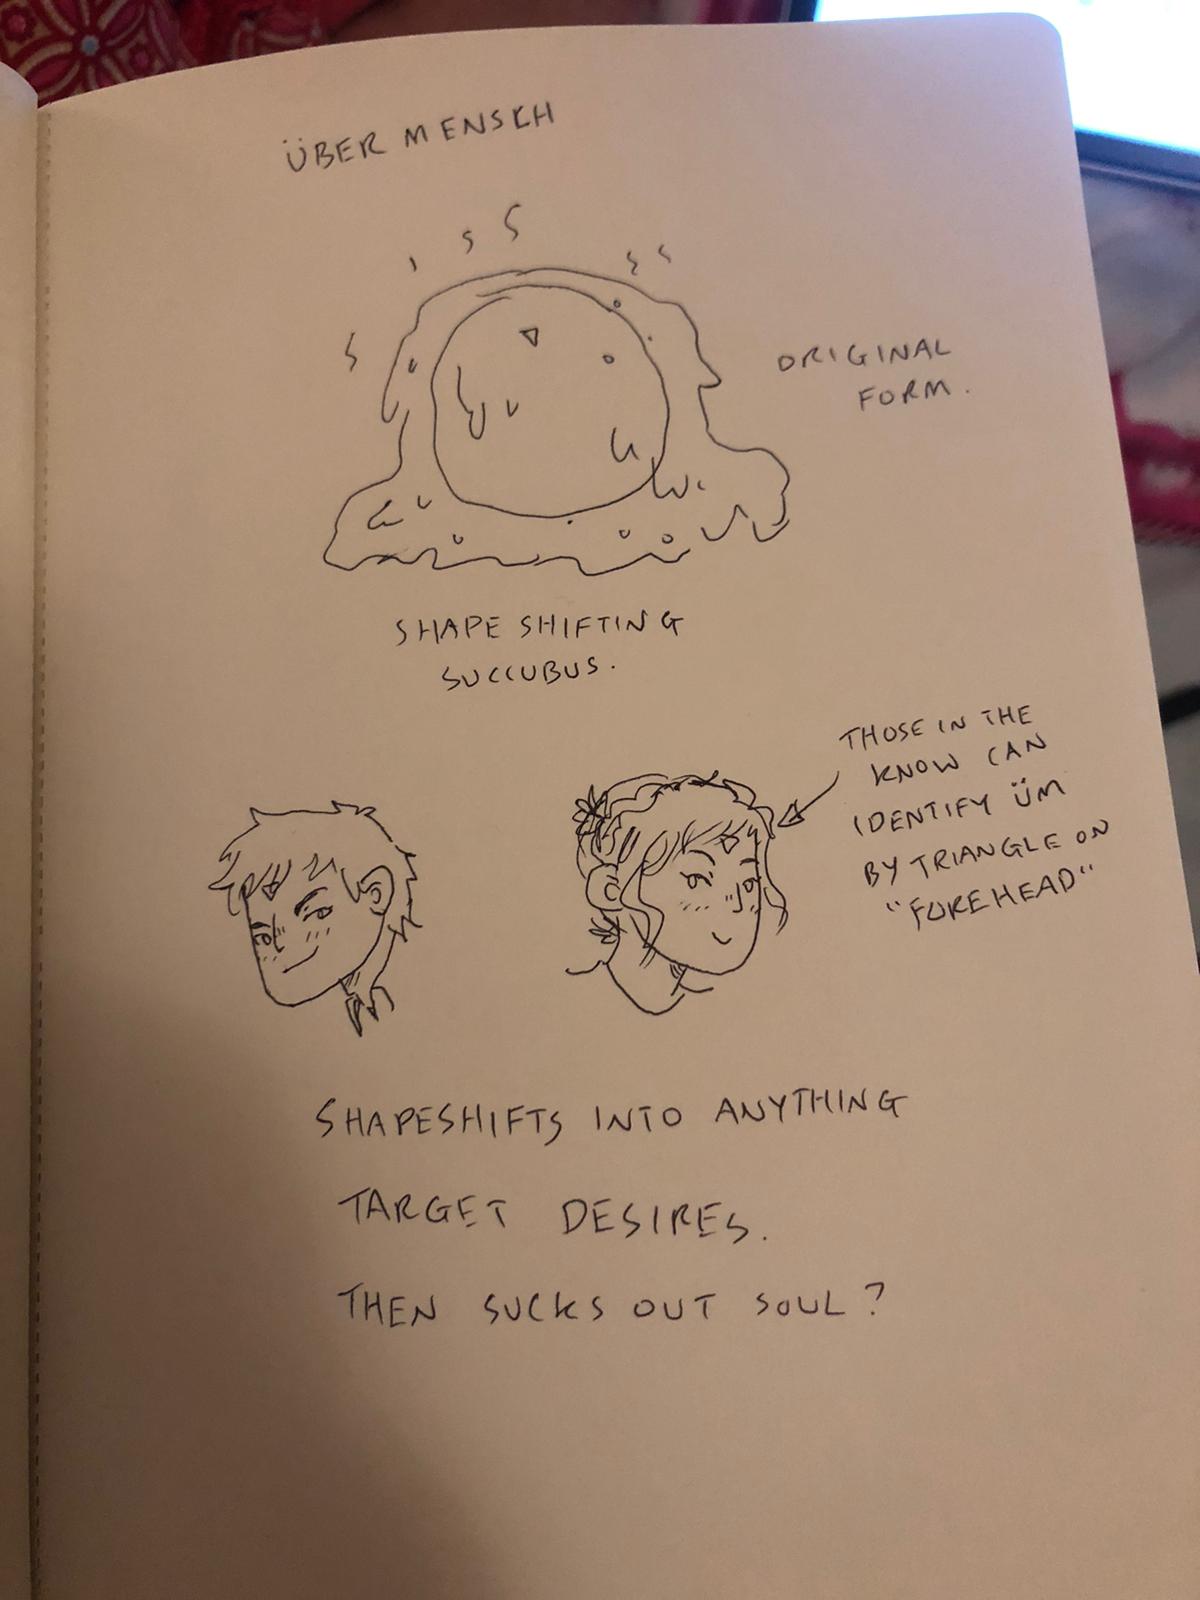 ÜBER MENSCH
ORIGINAL
FORM.
SHAPE SHIFTING
SUCCUBUS.
THOSE IN THE
KNOW CAN
IDENTIFY ÜM
BY TRIANGLE ON
"FOREHEAD"
SHAPESHIFTS INTO ANYTHING
TARGET DESIRES.
THEN SUCKS OUT SOUL?